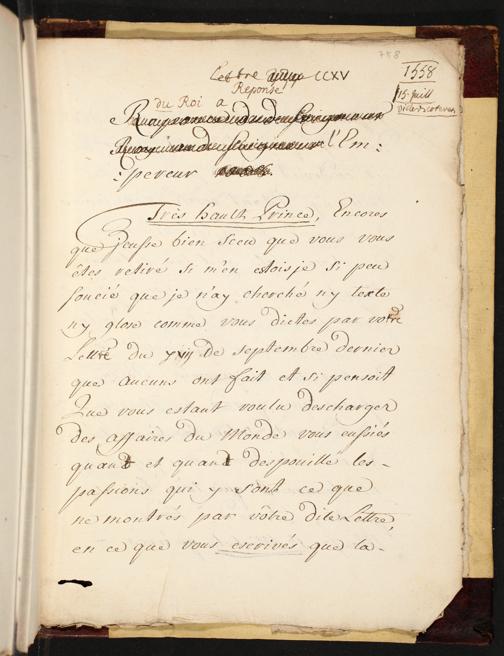 758
Lettre CCXV
1558
Réponse
15. Juill
du Roi a
l'Em:
:pereur
Très hault Prince, Encores
que j'eusse bien sceu que vous vous
êtes retiré si m'en estois je si peu
soucié que je n'ay cherché n'y texte
n'y glose comme vous dictes par votre
Lettre du xviij de septembre dernier
que aucuns ont fait et si pensoit
Que vous estant voulu descharger
des affaires du Monde vous eussiés
quand et quand despouillé les-
passions qui y sont ce que
ne montrés par vôtre dite Lettre,
en ce que vous escrivés que la-